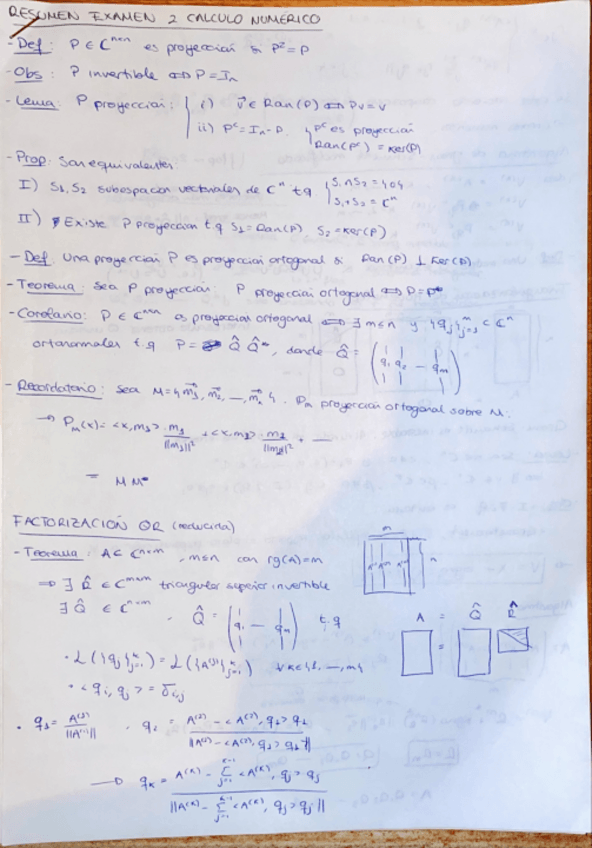 RESUMEN EXAMEN 2 CALCULO NUMÉRICO
- Def: P ∈ ℂⁿˣⁿ es proyección si P² = P
- Obs: P invertible ⟺ P = Iₙ
- Lema: P proyección: i) v⃗ ∈ Ran(P) ⟺ Pv = v
ii) Pᶜ = Iₙ - P. Pᶜ es proyección
Ran(Pᶜ) = Ker(P)
- Prop: San equivalentes:
I) S₁, S₂ subespacios vectoriales de ℂⁿ t.q { S₁ ∩ S₂ = {0}
S₁ + S₂ = ℂⁿ
II) Existe P proyección t.q S₁ = Ran(P), S₂ = Ker(P)
- Def: Una proyección P es proyección ortogonal si Ran(P) ⊥ Ker(P)
- Teorema: Sea P proyección: P proyección ortogonal ⟺ P = P*
- Corolario: P ∈ ℂⁿˣⁿ es proyección ortogonal ⟺ ∃ m ≤ n y {qⱼ}ⱼ₌₁ᵐ ⊂ ℂⁿ
ortonormales t.q P = Q̂ Q̂*, donde Q̂ = ( q₁ q₂ — qₘ )
- Recordatorio: Sea M = {m⃗₁, m⃗₂, —, m⃗ₙ}. Pₘ proyección ortogonal sobre M.
→ Pₘ(x) = <x, m₁> · m₁/||m₁||² + <x, m₂> · m₂/||m₂||² + —
= M M*
FACTORIZACIÓN QR (reducida)
- Teorema: A ∈ ℂⁿˣᵐ, m ≤ n con rg(A) = m
⟹ ∃ R̂ ∈ ℂᵐˣᵐ triangular superior invertible
∃ Q̂ ∈ ℂⁿˣᵐ, Q̂ = ( q₁ — qₘ ) t.q
A = Q̂ R̂
=
· L({qⱼ}ⱼ₌₁ᵏ) = L({A⁽ʲ⁾}ⱼ₌₁ᵏ) ∀ k ∈ {1, —, m}
· <qᵢ, qⱼ> = δᵢ,ⱼ
· q₁ = A⁽¹⁾/||A⁽¹⁾|| , q₂ = A⁽²⁾ - <A⁽²⁾, q₁> q₁ / ||A⁽²⁾ - <A⁽²⁾, q₁> q₁||
→ qₖ = A⁽ᵏ⁾ - Σⱼ₌₁ᵏ⁻¹ <A⁽ᵏ⁾, qⱼ> qⱼ / ||A⁽ᵏ⁾ - Σⱼ₌₁ᵏ⁻¹ <A⁽ᵏ⁾, qⱼ> qⱼ||